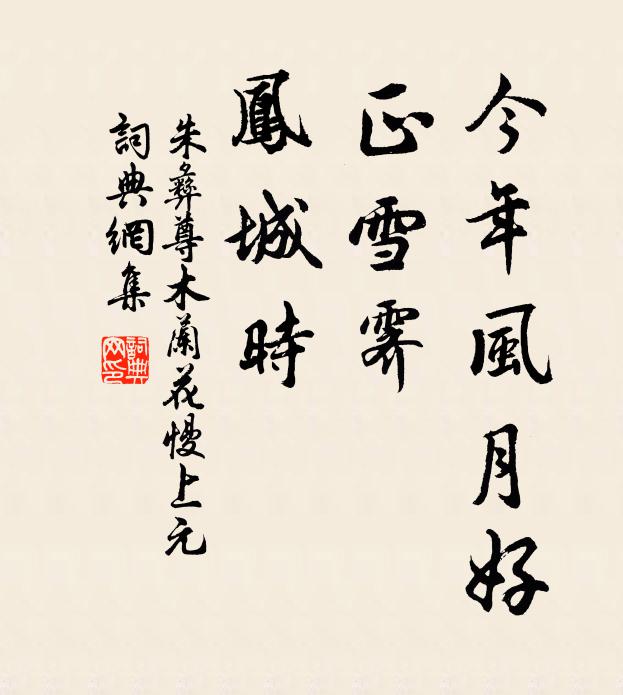 今年風月好
正雪霽
鳳城時
朱彝尊木蘭花慢上元
詞典網集
詞典網印